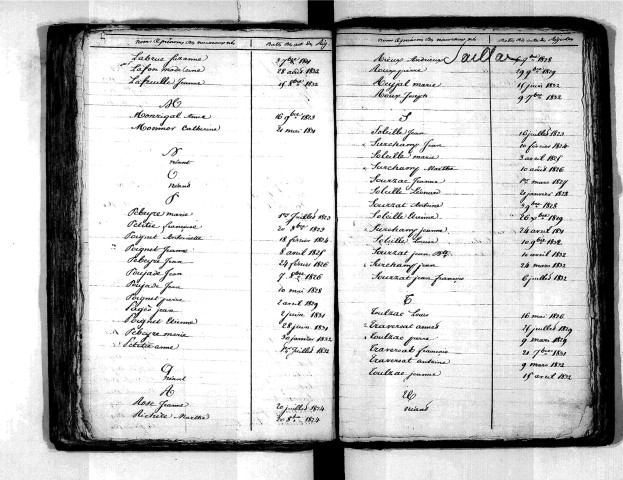 Noms et prénoms des nouveaux nés Date des act. des Reg.
Labrue Suzanne 2 7bre 1831
Lafon madelaine 28 août 1832
Lafeuille Jeanne 15 8bre 1832
M
Monrigal Anne 16 9bre 1823
Monmor Catherine 20 mai 1831
N
néant
O
néant
P
Pebeyre marie 1er Juillet 1823
Petitie françoise 20 8bre 1823
Poignet Antoinette 18 février 1824
Poignet Jeanne 8 avril 1825
Pebeyre Jean 24 février 1826
Poujade Jean 7 8bre 1826
Poujade Jean 10 mai 1828
Poignet pierre 2 avril 1829
Pagès jean 2 juin 1831
Poignet Etienne 28 juin 1831
Pebeyre marie 30 janvier 1832
Petitie anne 1er Juillet 1832
Q
néant
R
Rose Jeanne 20 juillet 1824
Richete Marthe 20 8bre 1824
Noms et prénoms des nouveaux nés Date des actes des Registres
Saillac
9bre 1828
Roux pierre 29 9bre 1829
marie 15 juin 1832
Roux Joseph 9 7bre 1832
S
Soleille Jean 16 juillet 1823
Surchamp Jean 10 février 1824
Soleille marie 3 avril 1825
Surchamp Marthe 10 août 1826
Sourzac Jeanne 1er mars 1827
Soleille Léonard 21 janvier 1828
Sourzat Antoine 3 9bre 1828
Soleille Etienne 26 9bre 1829
Surchamp jeanne 24 avril 1831
Soleille Louise 10 9bre 1832
Sourzat jean Bte 10 avril 1832
Surchamp jean 24 mars 1832
Sourzat jean françois 6 juillet 1832
T
Toulzac Louis 16 mai 1826
Traversat annet 25 juillet 1829
Toulzac pierre 9 mars 1829
Traversat françois 21 7bre 1831
Traversat antoine 9 mars 1832
Toulzac jeanne 15 avril 1832
U
néant